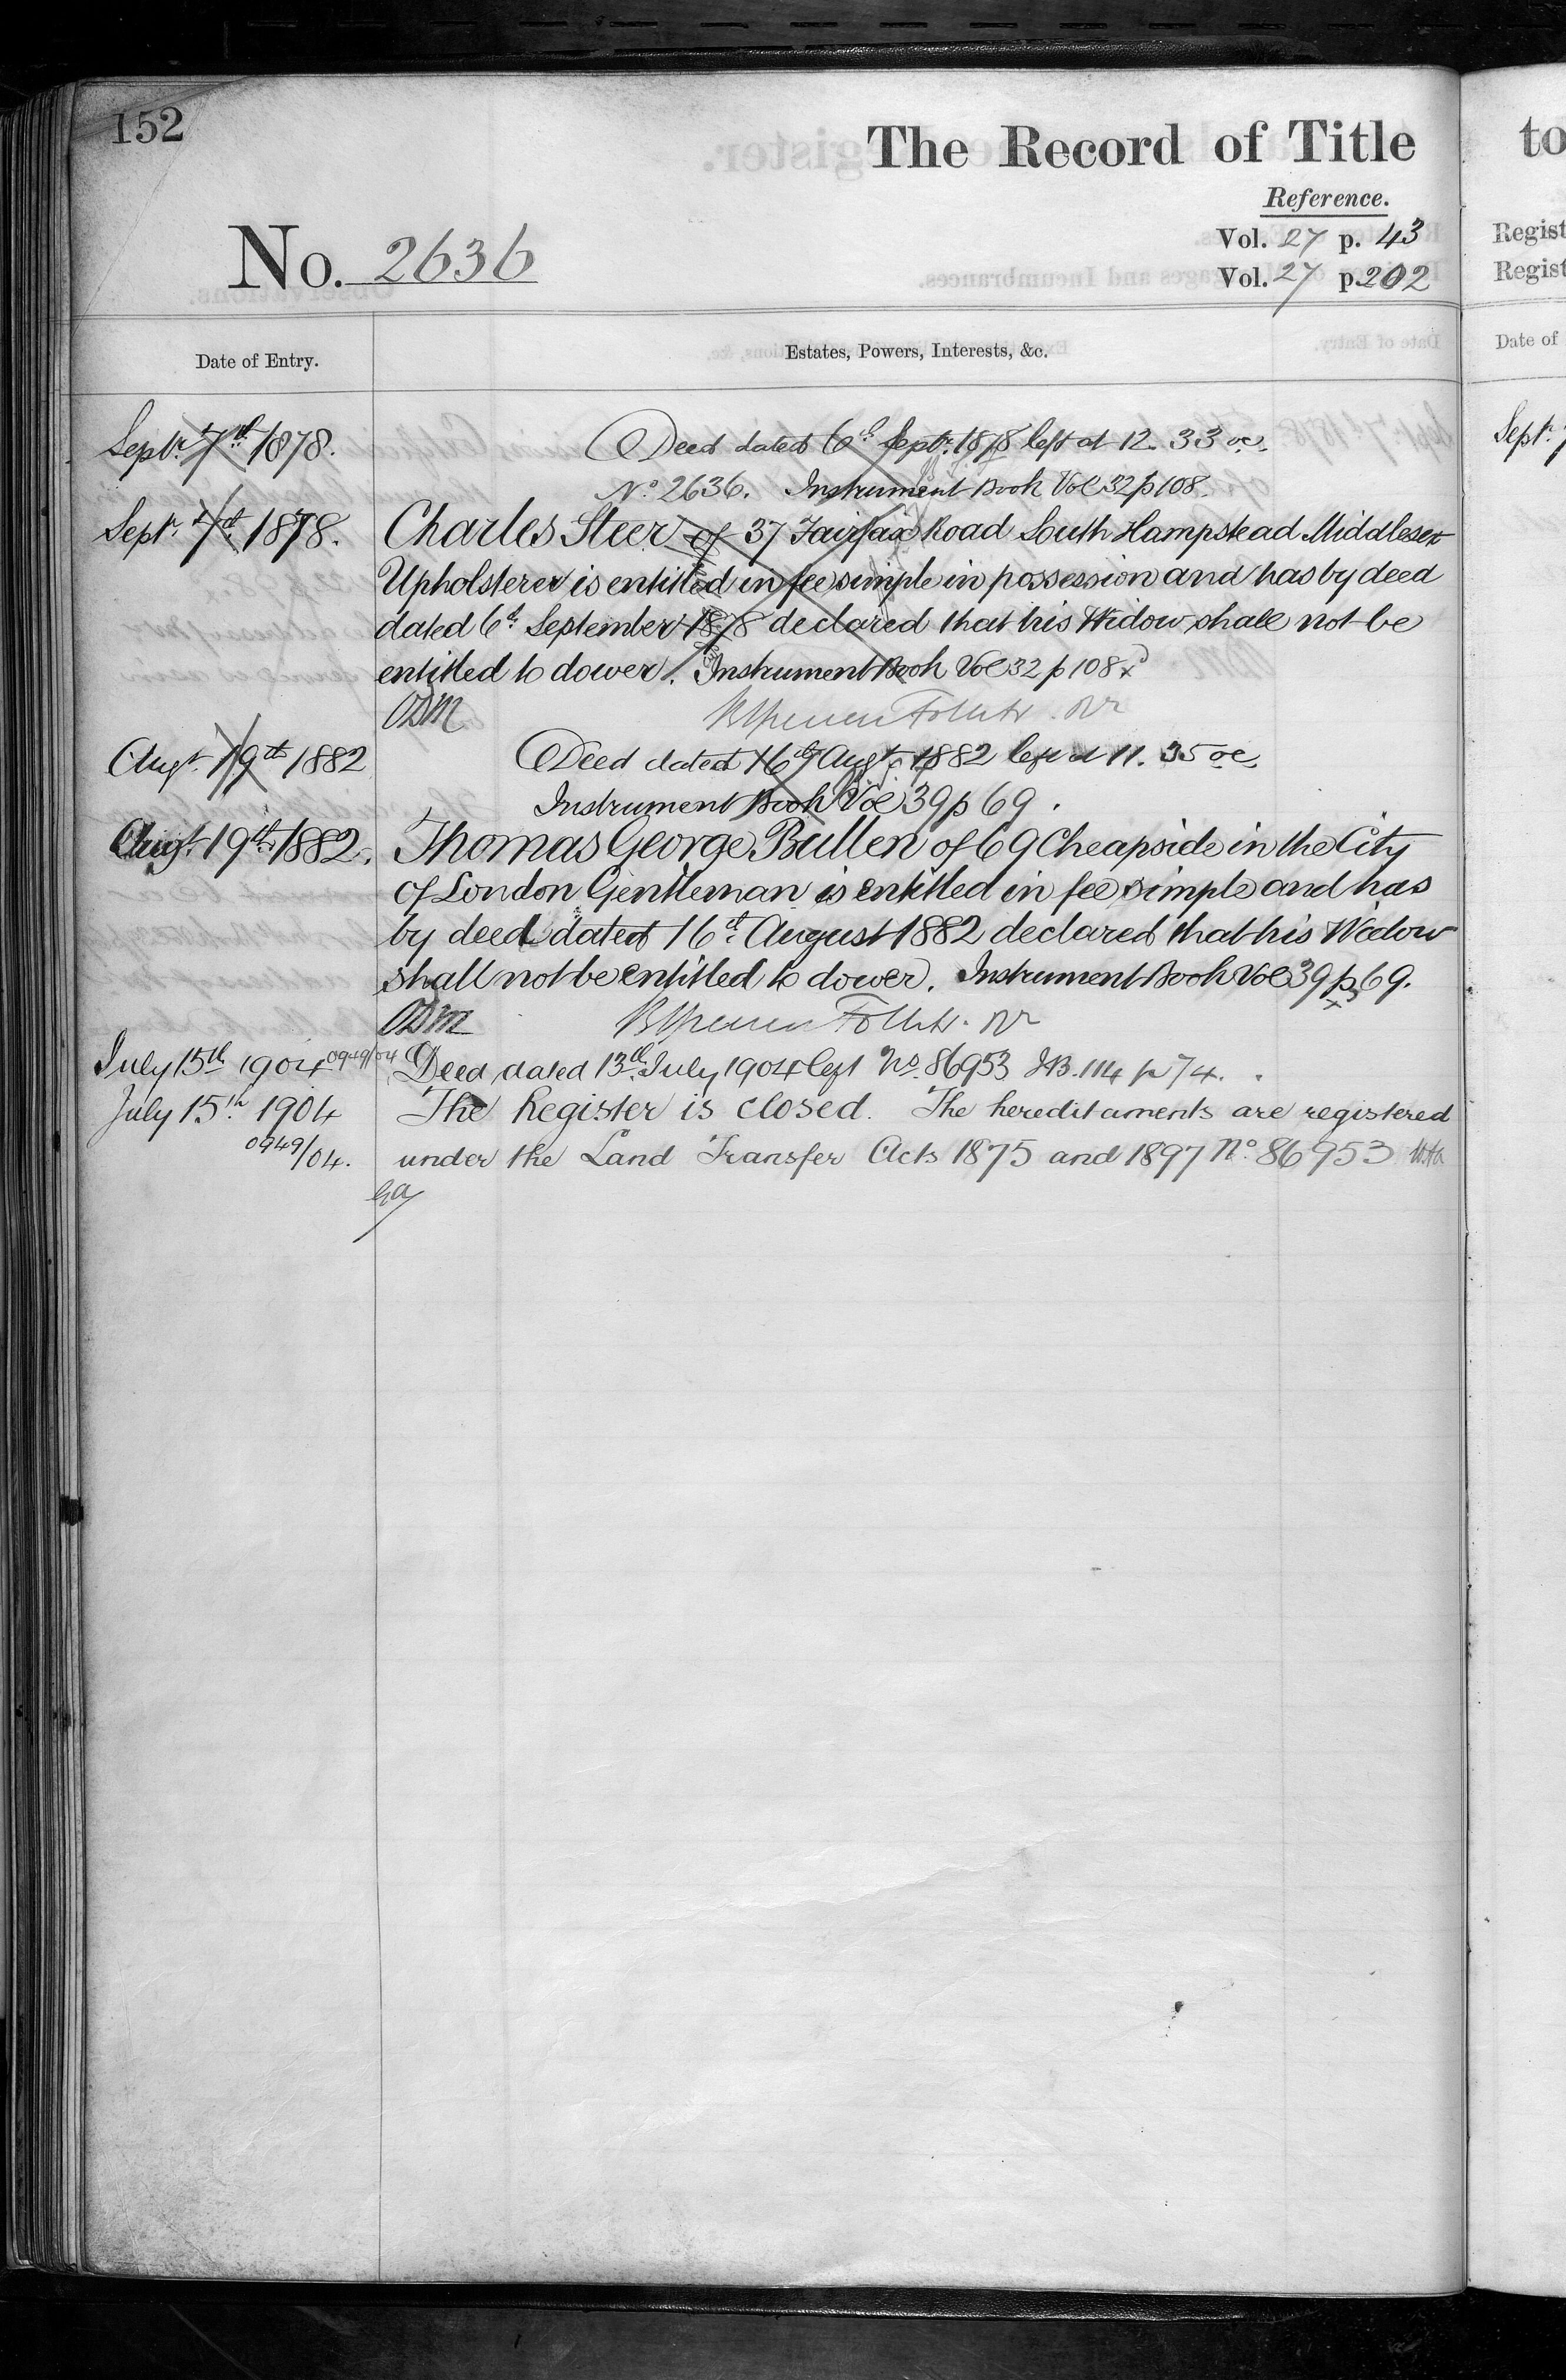 152
The Record of Title
to
Reference.
No. 2636
Vol. 27 p. 43
Vol. 27 p. 202
Regist
Regist
Date of Entry.
Estates, Powers, Interests, &c.
Date of
Septr. 7th 1878.
Deed dated 6th Septr. 1878 left at 12. 33 oc.
Sept. 7
No. 2636. Instrument Book Vol 32 p 108.
Septr. 7th 1878.
Charles Steer of 37 Fairfax Road South Hampstead Middlesex
Upholsterer is entitled in fee simple in possession and has by deed
dated 6th September 1878 declared that his Widow shall not be
entitled to dower. Instrument Book Vol 32 p 108
ODM
Augt. 19th 1882
Deed dated 16th Augt. 1882 left at 11. 35 oc
Instrument Book Vol 39 p 69.
Augt. 19th 1882.
Thomas George Bullen of 69 Cheapside in the City
of London Gentleman is entitled in fee simple and has
by deed dated 16th August 1882 declared that his Widow
shall not be entitled to dower. Instrument Book Vol 39 p 69.
ODM
July 15th 1904 0949/04
Deed dated 13th July 1904 left No. 86953 I.B. 114 p 74.
July 15th 1904
The Register is closed. The hereditaments are registered
0949/04.
under the Land Transfer Acts 1875 and 1897 No. 86953